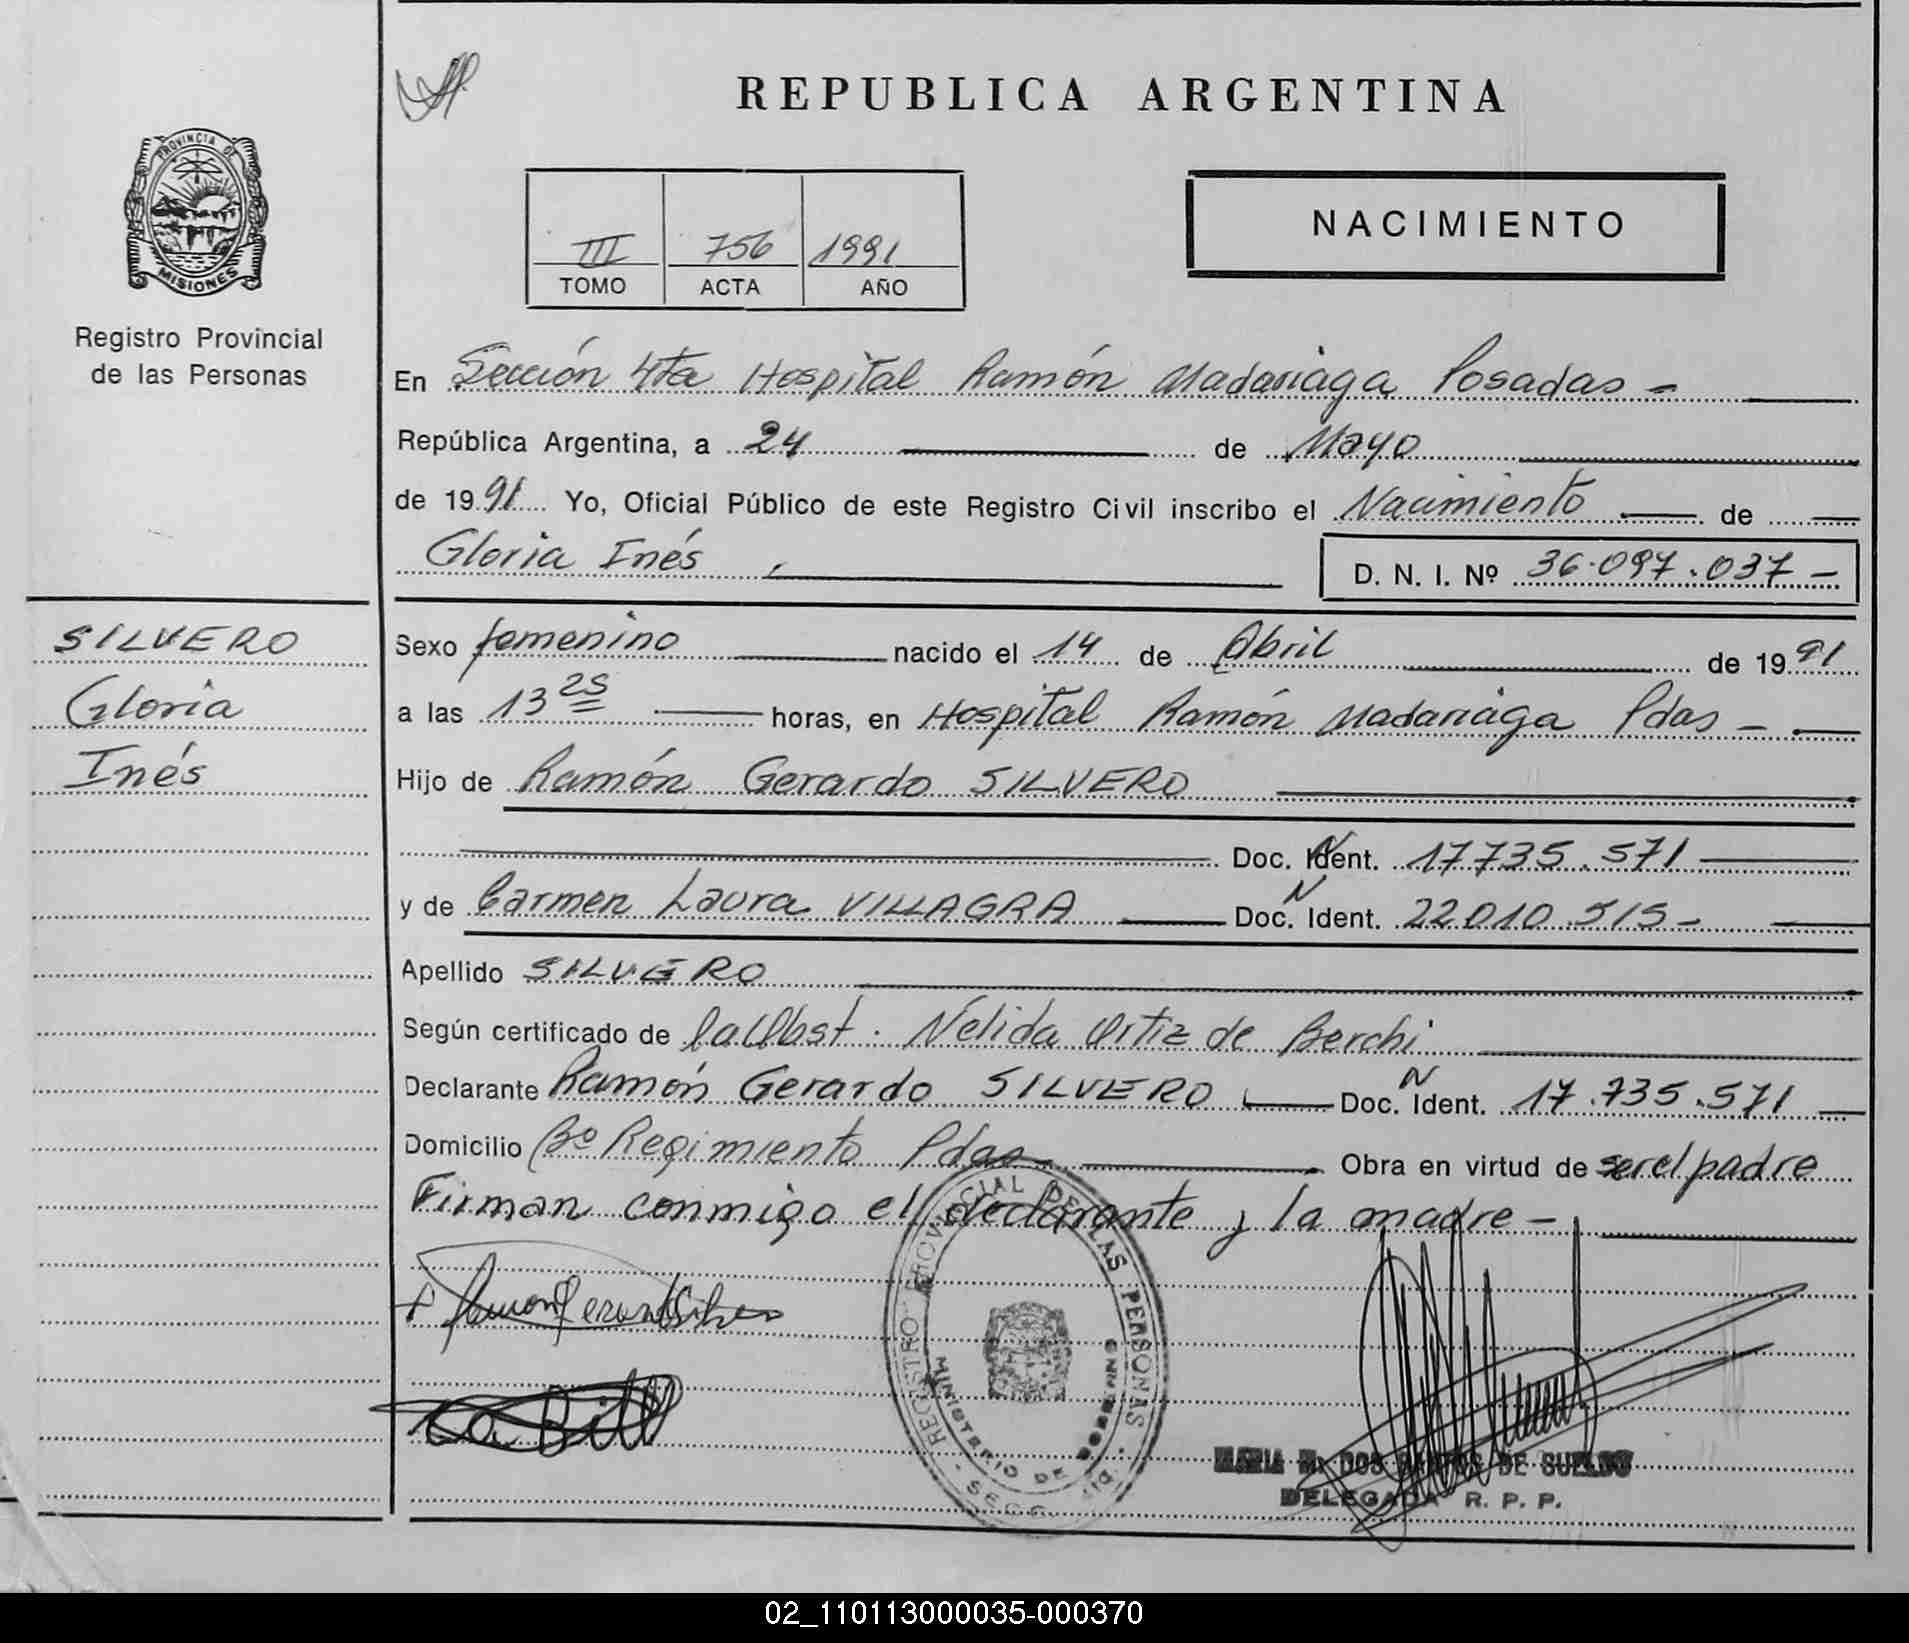 REPUBLICA ARGENTINA
PROVINCIA DE
MISIONES
Registro Provincial
de las Personas
III 756 1991
TOMO ACTA AÑO
NACIMIENTO
En Sección 4ta Hospital Ramón Madariaga Posadas -
República Argentina, a 24 de Mayo
de 1991 Yo, Oficial Público de este Registro Civil inscribo el Nacimiento de
Gloria Inés, D. N. I. Nº 36.097.037 -
SILVERO
Gloria
Inés
Sexo femenino nacido el 14 de Abril de 1991
a las 13 25 horas, en Hospital Ramón Madariaga Pdas -
Hijo de Ramón Gerardo SILVERO
Doc. N Ident. 17735.571
y de Carmen Laura VILLAGRA Doc. N Ident. 22010.515 -
Apellido SILVERO
Según certificado de la Obst. Nélida Ortiz de Berchi
Declarante Ramón Gerardo SILVERO Doc. N Ident. 17.735.571
Domicilio Bº Regimiento Pdas - Obra en virtud de ser el padre
Firman conmigo el declarante y la madre -
REGISTRO PROVINCIAL DE LAS PERSONAS
MINISTERIO DE GOBIERNO
MARIA M. DOS SANTOS DE SUELDO
DELEGADA R. P. P.
02_110113000035-000370